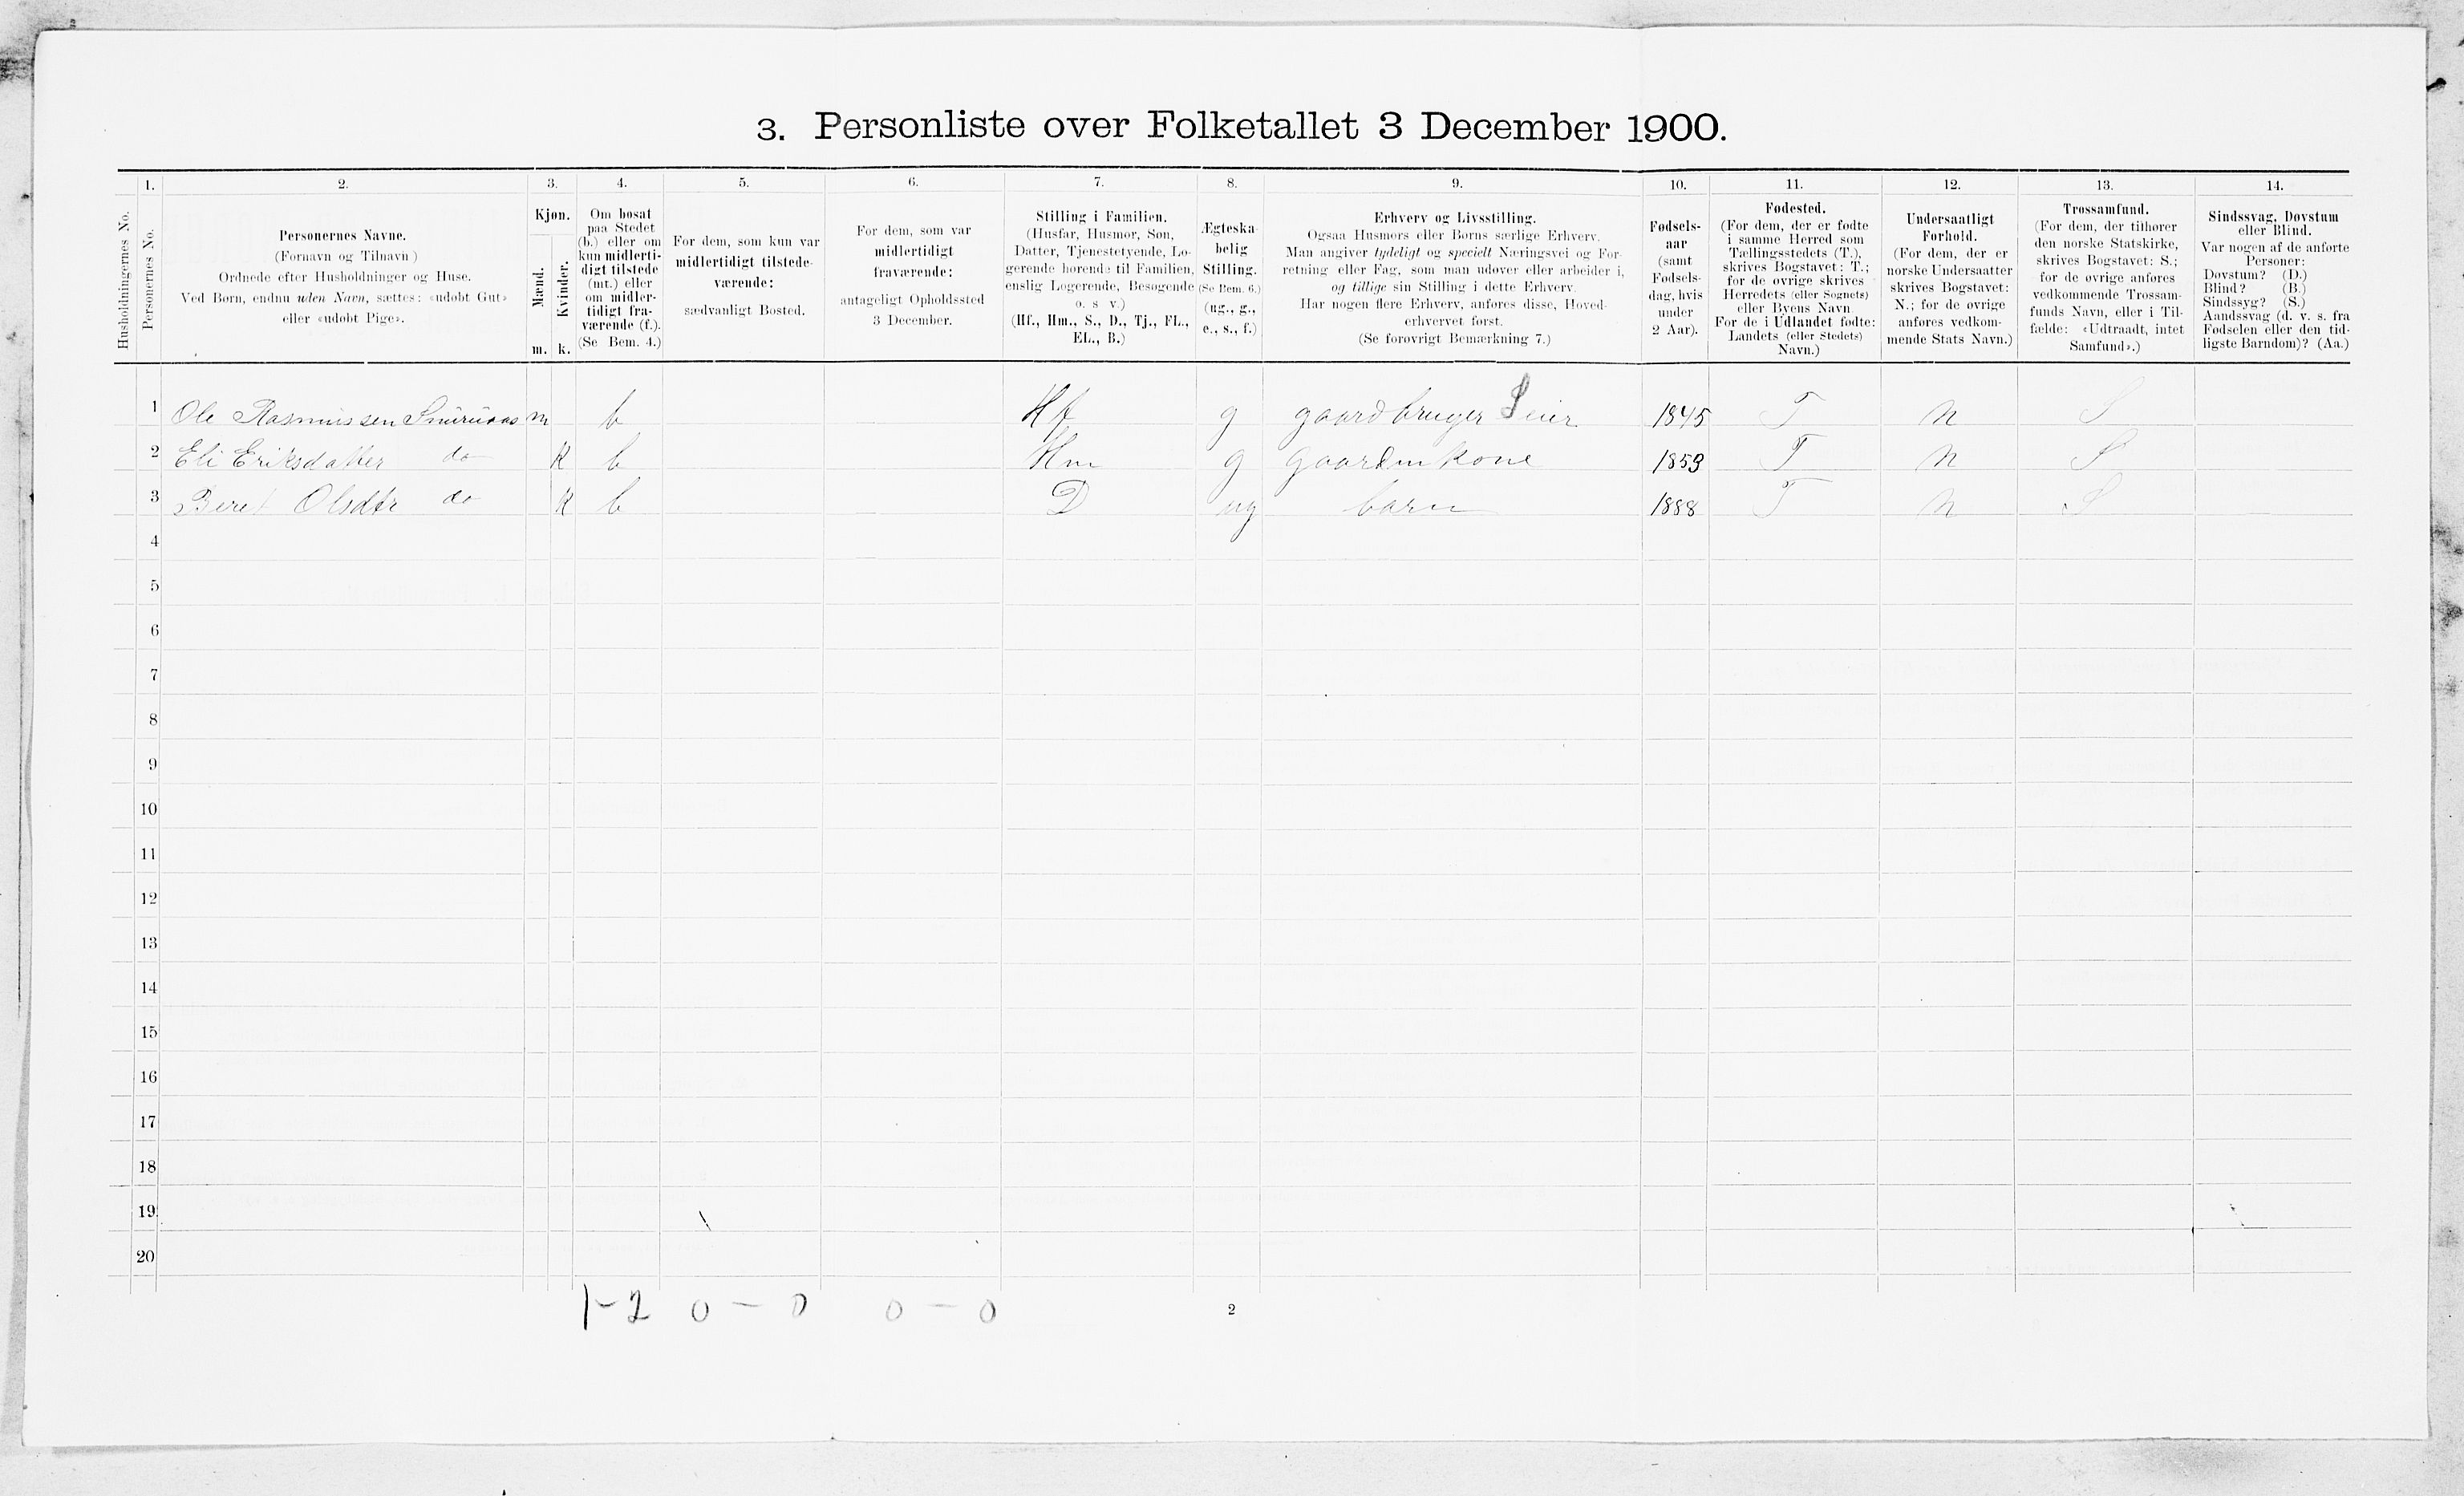 3. Personliste over Folketallet 3 December 1900.
1. 2. 3. 4. 5. 6. 7. 8. 9. 10. 11. 12. 13. 14.
Husholdningernes No.
Personernes No.
Personernes Navne.
(Fornavn og Tilnavn)
Ordnede efter Husholdninger og Huse.
Ved Børn, endnu uden Navn, sættes: «udøbt Gut»
eller «udøbt Pige».
Kjøn.
Mænd.
Kvinder.
m. k.
Om bosat
paa Stedet
(b.) eller om
kun midlerti-
digt tilstede
(mt.) eller
om midler-
tidigt fra-
værende (f.).
(Se Bem. 4.)
For dem, som kun var
midlertidigt tilstede-
værende:
sædvanligt Bosted.
For dem, som var
midlertidigt
fraværende:
antageligt Opholdssted
3 December.
Stilling i Familien.
(Husfar, Husmor, Søn,
Datter, Tjenestetyende, Lo-
gerende hørende til Familien,
enslig Logerende, Besøgende
o. s v.)
(Hf., Hm., S., D., Tj., FL.,
EL., B.)
Ægteska-
belig
Stilling.
(Se Bem. 6.)
(ug., g.,
e., s., f.)
Erhverv og Livsstilling.
Ogsaa Husmors eller Børns særlige Erhverv.
Man angiver tydeligt og specielt Næringsvei og For-
retning eller Fag, som man udøver eller arbeider i,
og tillige sin Stilling i dette Erhverv.
Har nogen flere Erhverv, anføres disse, Hoved-
erhvervet først.
(Se forøvrigt Bemærkning 7.)
Fødsels-
aar
(samt
Fødsels-
dag, hvis
under
2 Aar).
Fødested.
(For dem, der er fødte
i samme Herred som
Tællingsstedets (T.),
skrives Bogstavet: T.;
for de øvrige skrives
Herredets (eller Sognets)
eller Byens Navn.
For de i Udlandet fødte:
Landets (eller Stedets)
Navn.)
Undersaatligt
Forhold.
(For dem, der er
norske Undersaatter
skrives Bogstavet:
N.; for de øvrige
anføres vedkom-
mende Stats Navn.)
Trossamfund.
(For dem, der tilhører
den norske Statskirke,
skrives Bogstavet: S.;
for de øvrige anføres
vedkommende Trossam-
funds Navn, eller i Til-
fælde: «Udtraadt, intet
Samfund».)
Sindssvag, Døvstum
eller Blind.
Var nogen af de anførte
Personer:
Døvstum? (D.)
Blind? (B.)
Sindssyg? (S.)
Aandssvag (d. v. s. fra
Fødselen eller den tid-
ligste Barndom)? (Aa.)
1 Ole Rasmussen m b Hf g gaardbruger Seier 1845 T N S
2 Eli Eriksdatter do K b Hm g gaardmkone 1853 T N S
3 Beret Olsdtr do K b D ug barn 1888 T N S
4
5
6
7
8
9
10
11
12
13
14
15
16
17
18
19
20
1-2 0 - 0 0 - 0
2